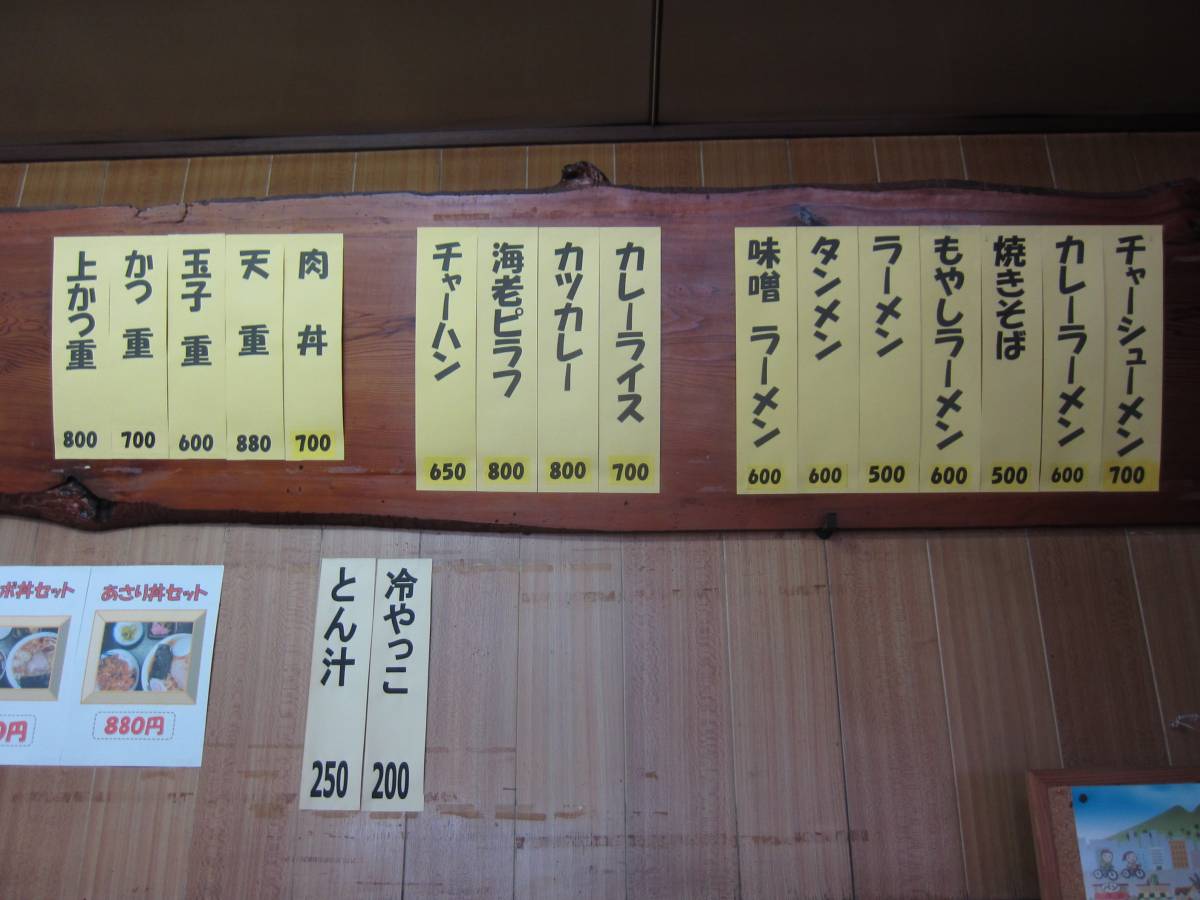 チャーシューメン 700
カレーラーメン 600
焼きそば 500
もやしラーメン 600
ラーメン 500
タンメン 600
味噌 ラーメン 600
カレーライス 700
カツカレー 800
海老ピラフ 800
チャーハン 650
肉 丼 700
天 重 880
玉子 重 600
かつ 重 700
上かつ重 800
冷やっこ 200
とん汁 250
あさり丼セット
880円
ボ丼セット
0円